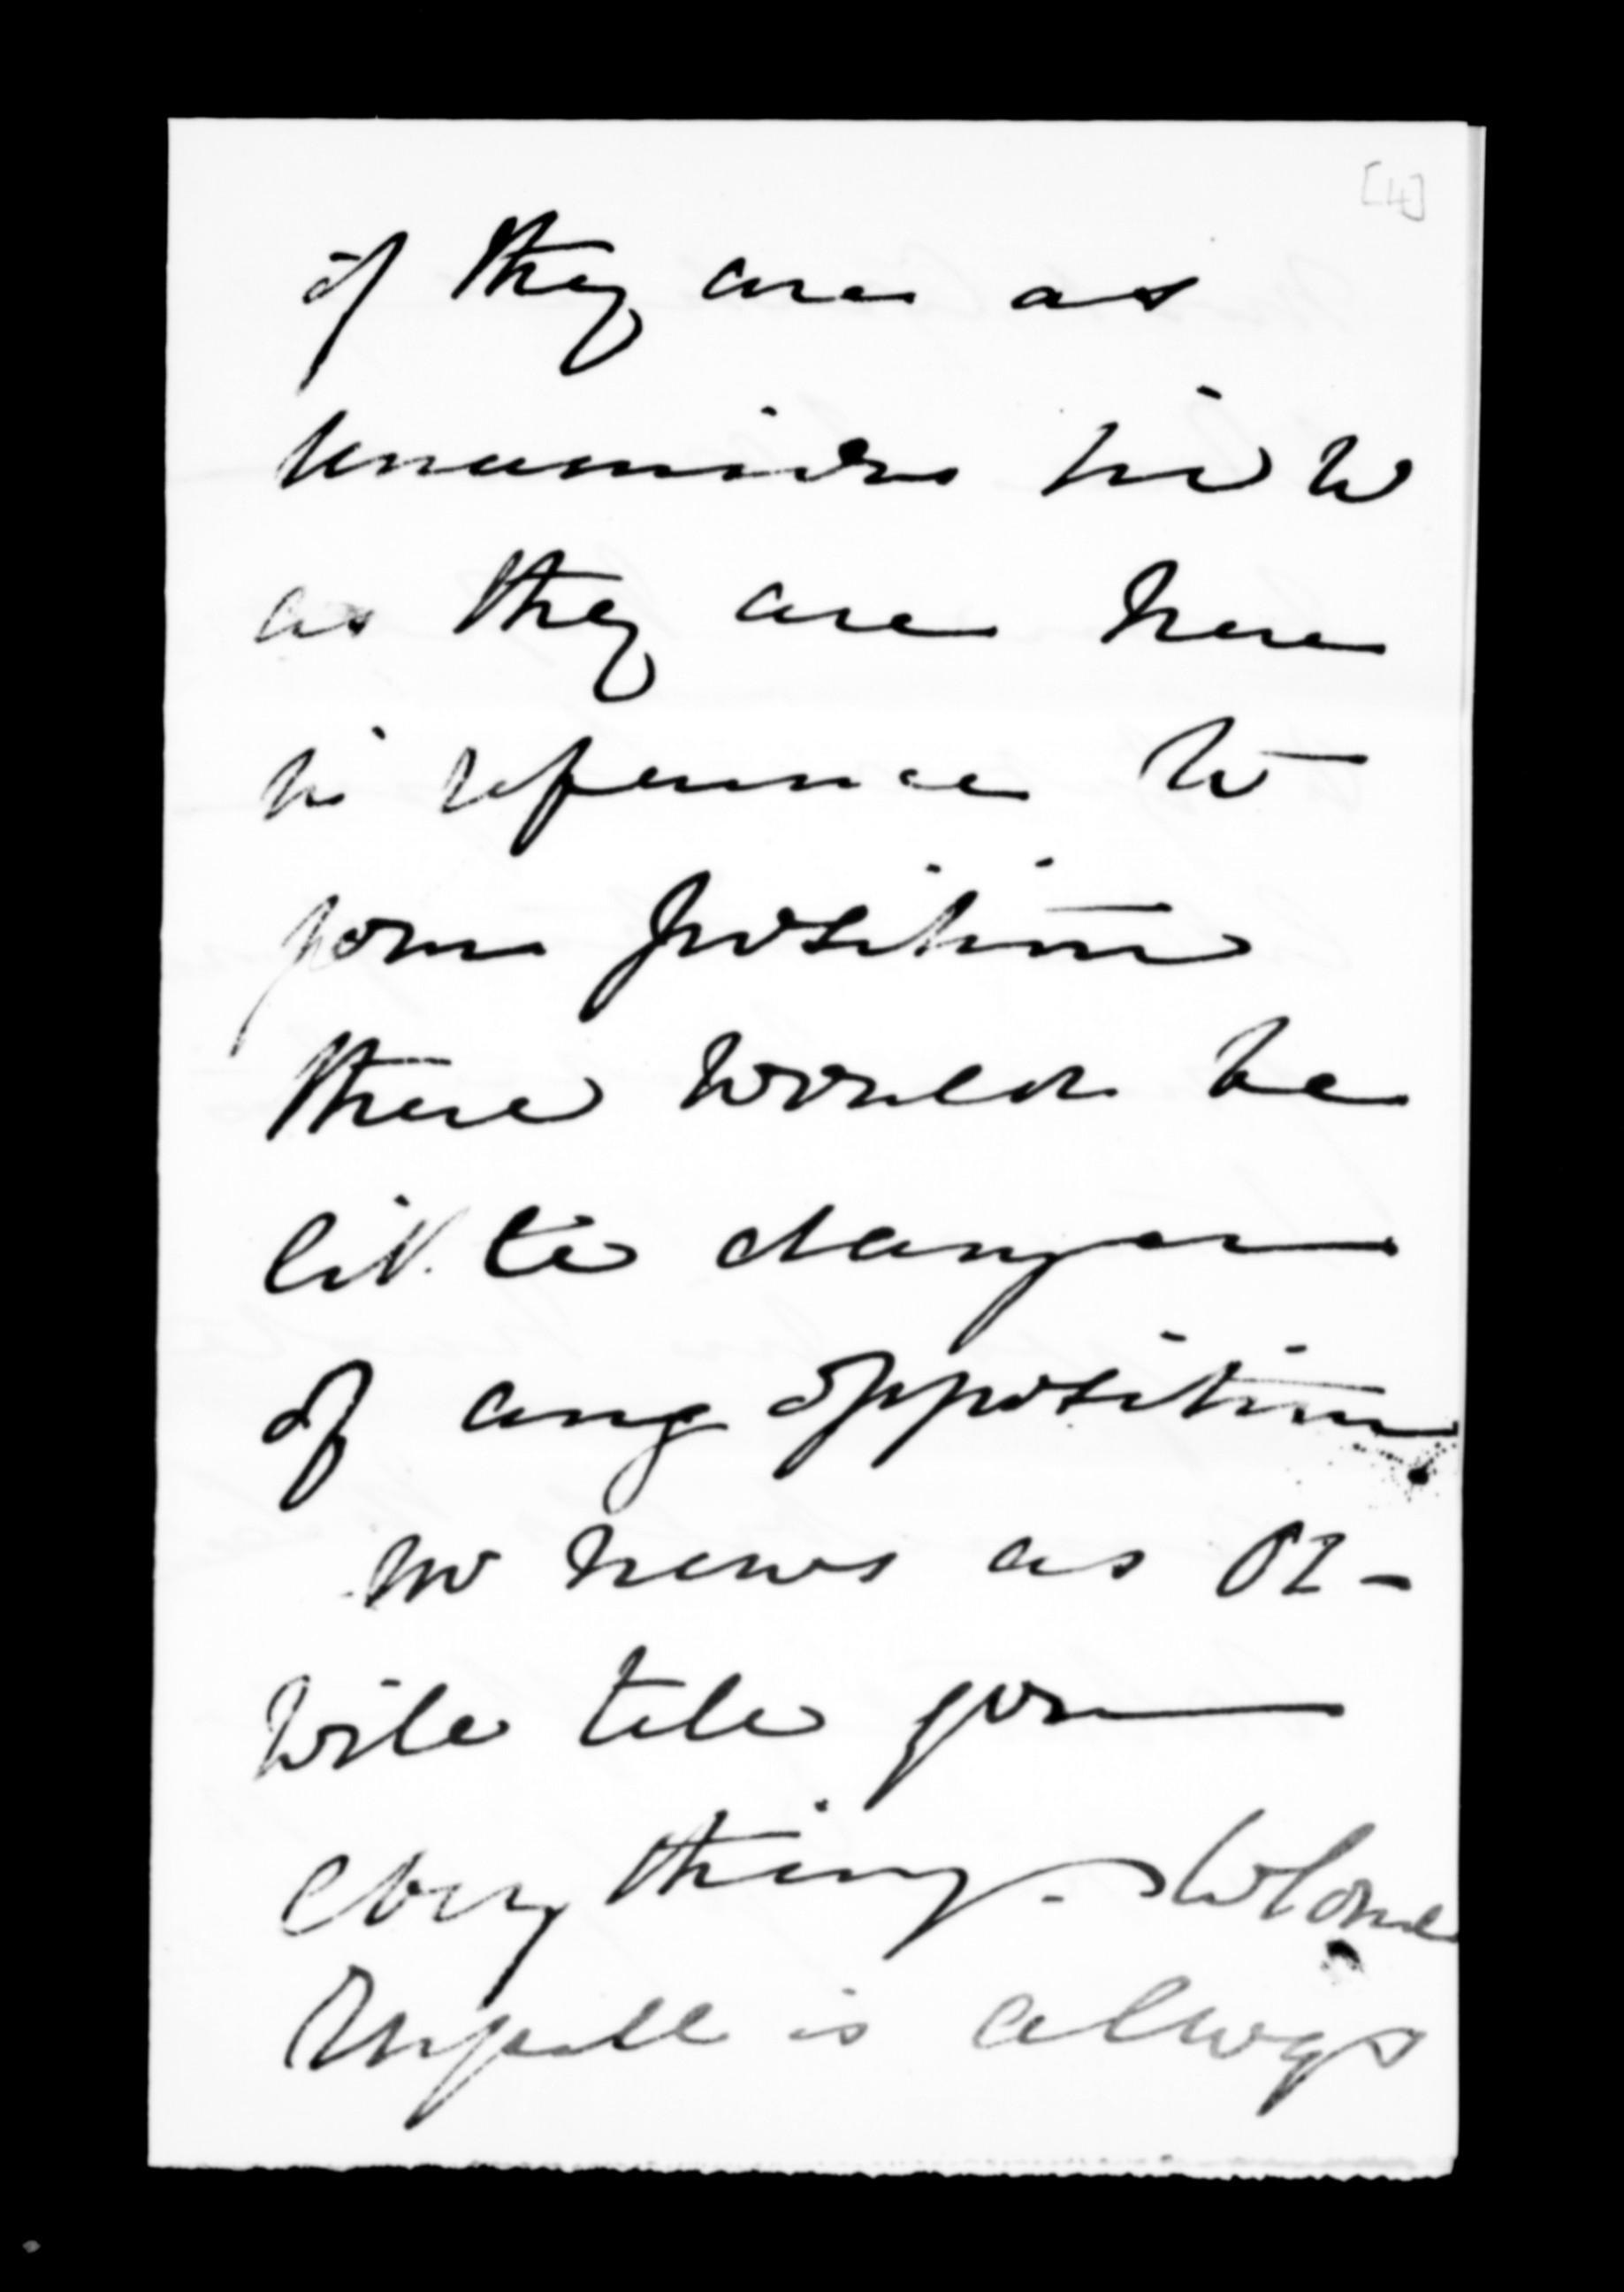 [4]
if they are as
unanimous in W
as they are here
in reference to
your position
there would be
little danger
of any opposition
no news as
will tell you
every thing. Colonel
Russell is always